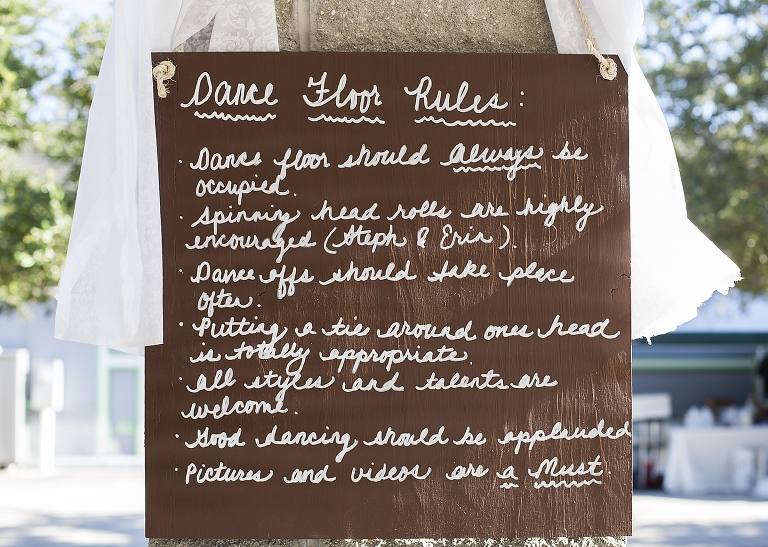 Dance Floor Rules:
· Dance floor should always be
occupied.
· Spinning head rolls are highly
encouraged (Steph & Erin).
· Dance offs should take place
often.
· Putting a tie around ones head
is totally appropriate.
· All styles and talents are
welcome.
· Good dancing should be applauded
· Pictures and videos are a Must.